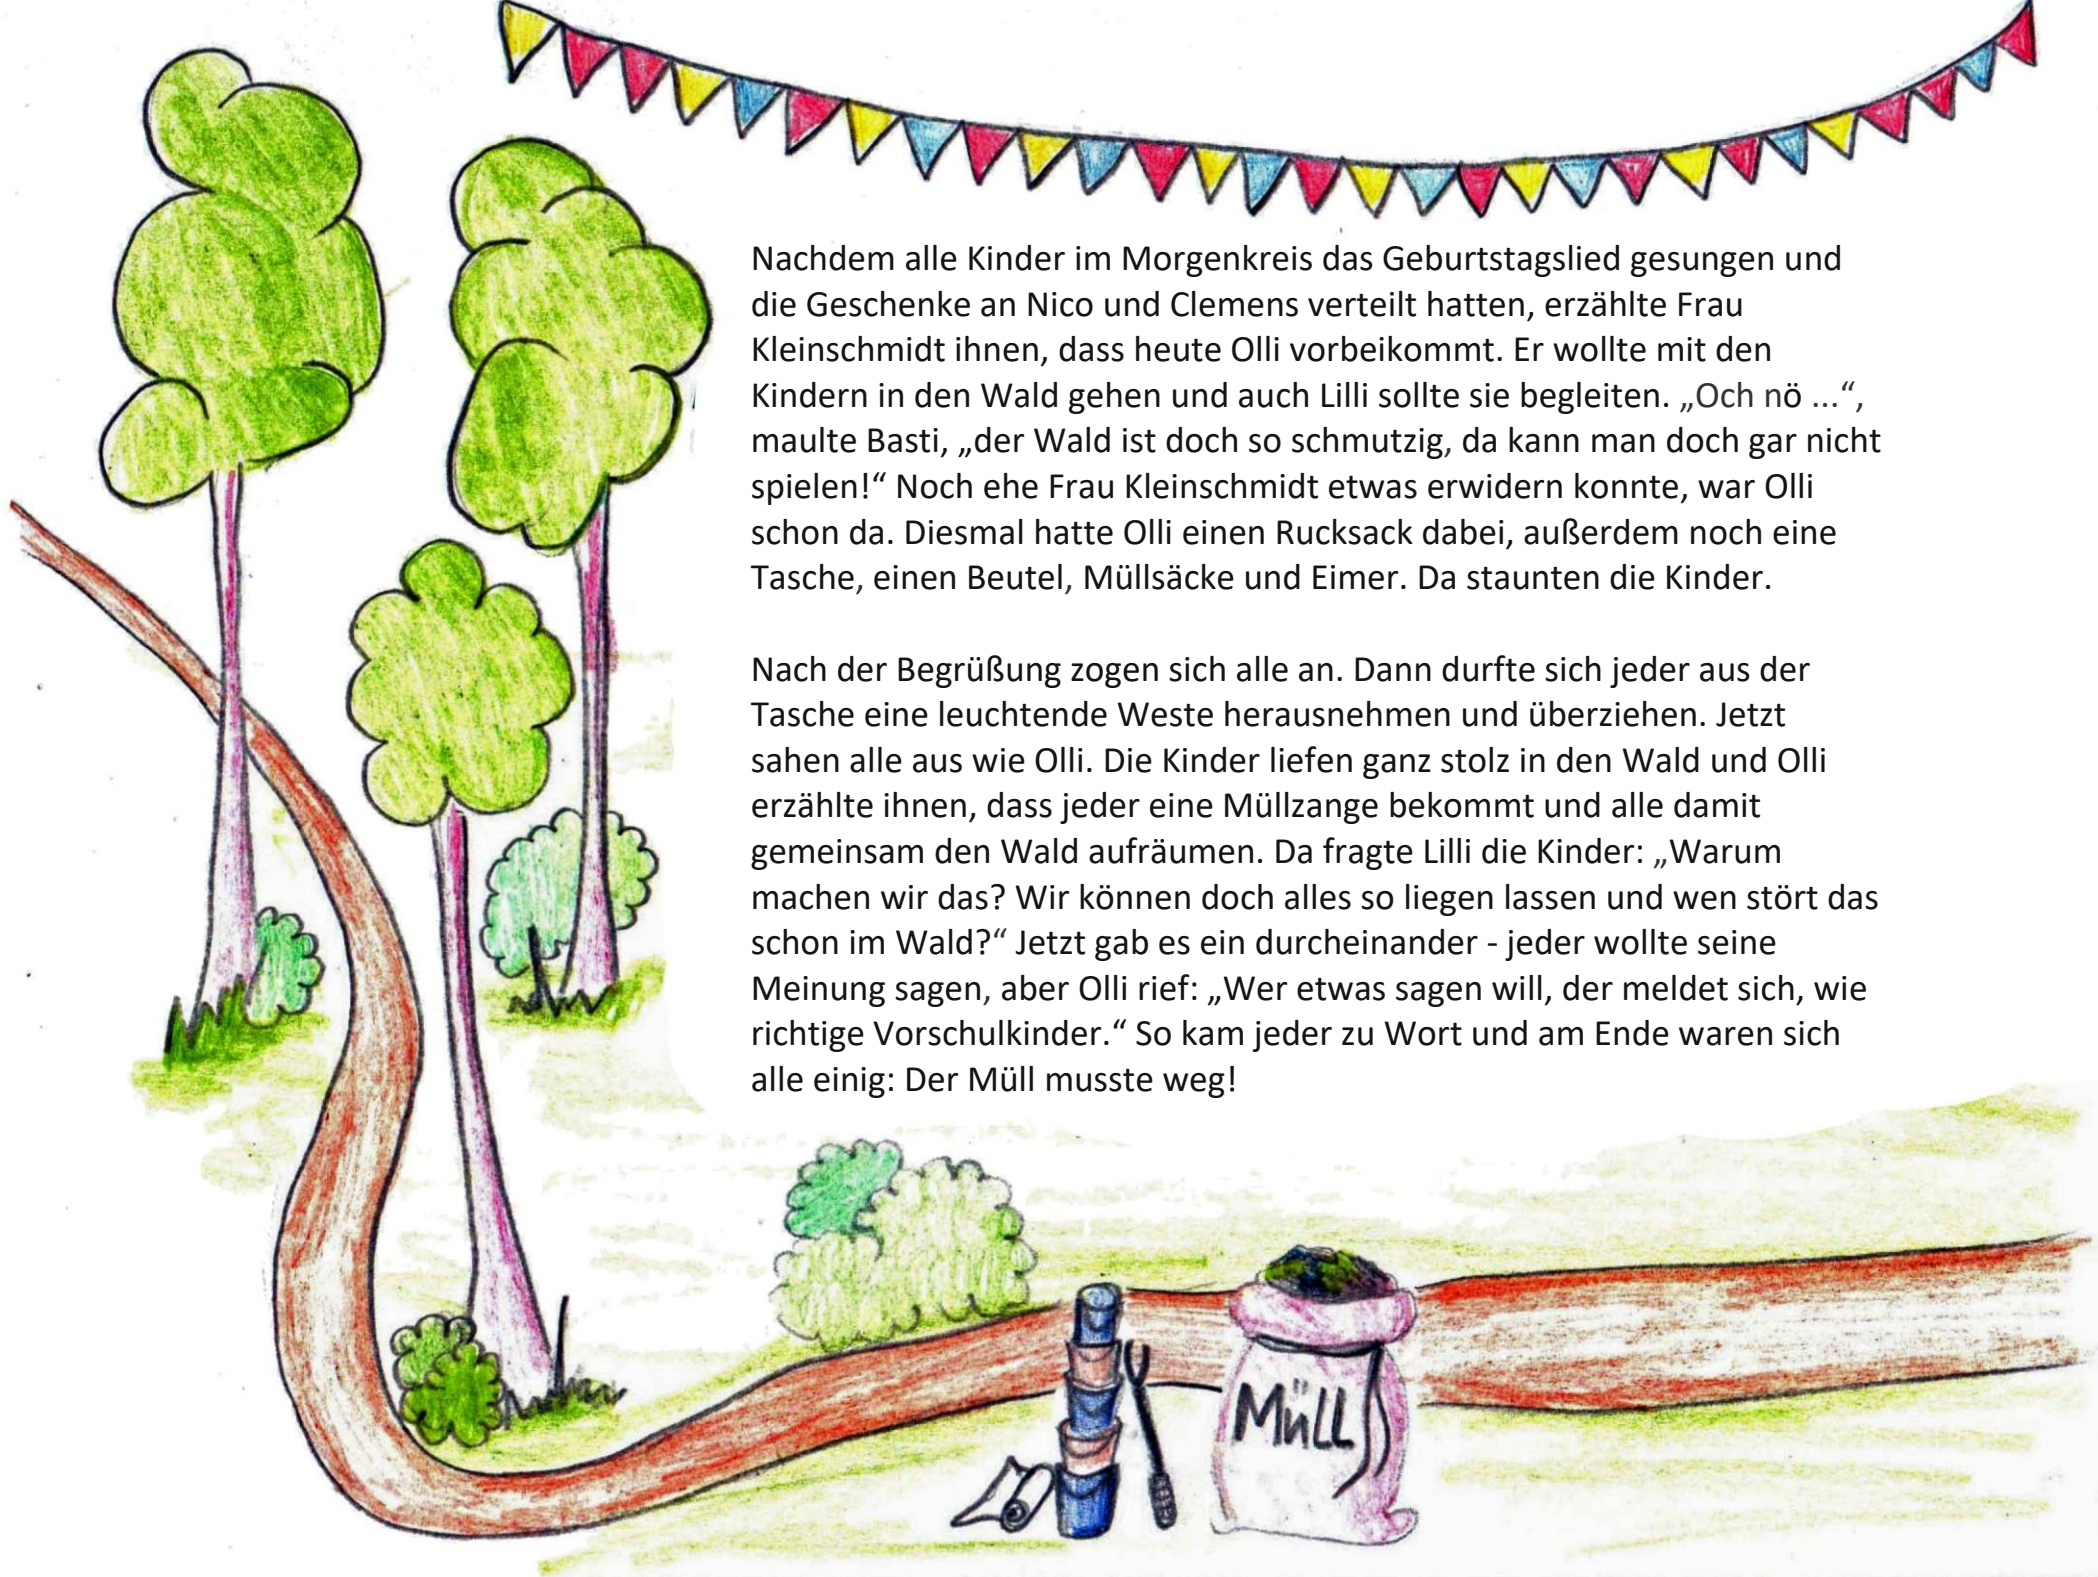 Nachdem alle Kinder im Morgenkreis das Geburtstagslied gesungen und
die Geschenke an Nico und Clemens verteilt hatten, erzählte Frau
Kleinschmidt ihnen, dass heute Olli vorbeikommt. Er wollte mit den
Kindern in den Wald gehen und auch Lilli sollte sie begleiten. „Och nö ...“,
maulte Basti, „der Wald ist doch so schmutzig, da kann man doch gar nicht
spielen!“ Noch ehe Frau Kleinschmidt etwas erwidern konnte, war Olli
schon da. Diesmal hatte Olli einen Rucksack dabei, außerdem noch eine
Tasche, einen Beutel, Müllsäcke und Eimer. Da staunten die Kinder.

Nach der Begrüßung zogen sich alle an. Dann durfte sich jeder aus der
Tasche eine leuchtende Weste herausnehmen und überziehen. Jetzt
sahen alle aus wie Olli. Die Kinder liefen ganz stolz in den Wald und Olli
erzählte ihnen, dass jeder eine Müllzange bekommt und alle damit
gemeinsam den Wald aufräumen. Da fragte Lilli die Kinder: „Warum
machen wir das? Wir können doch alles so liegen lassen und wen stört das
schon im Wald?“ Jetzt gab es ein durcheinander - jeder wollte seine
Meinung sagen, aber Olli rief: „Wer etwas sagen will, der meldet sich, wie
richtige Vorschulkinder.“ So kam jeder zu Wort und am Ende waren sich
alle einig: Der Müll musste weg!
MüLL